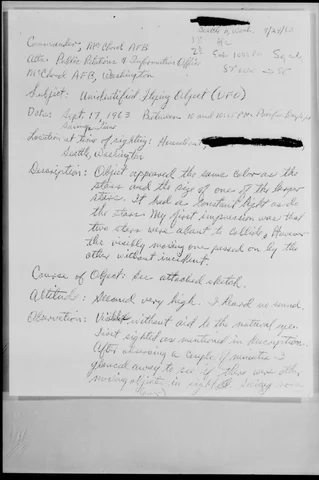 Seattle, Wash.
Commander, McChord AFB
Attn: Public Relations & Information Office
McChord AFB, Washington
Subject: Unidentified Flying Object (UFO)
Date: Sept 17, 1963 Between 10 and 10:15 PM Pacific Daylight
Saving Time
Location at time of sighting: Houseboat,
Seattle, Washington
Description: Object appeared the same color as the
stars and the size of one of the larger
stars. It had a constant light as do
the stars. My first impression was that
two stars were about to collide, However
the visibly moving one passed on by the
other without incident.
Course of Object: See attached sketch.
Altitude: Seemed very high. I heard no sound.
Observation: Visible without aid to the natural eye.
First sighted as mentioned in Description.
After observing a couple of minutes I
glanced away to see if there were other
moving objects in sight